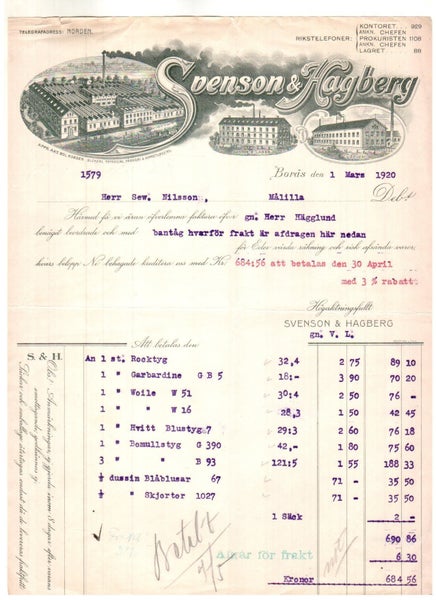 TELEGRAFADRESS: NORDEN.
RIKSTELEFONER:
KONTORET... 929
ANKN. CHEFEN
PROKURISTEN 1108
ANKN. CHEFEN
LAGRET 68
Svenson & Hagberg
1579
Borås den 1 Mars 1920
Herr Sew. Nilsson, Målilla Debet
Härmed få vi äran öfverlemna faktura öfver gn. Herr Hägglund
benäget beordrade och med bantåg hvarför frakt är afdragen här nedan
för Eder värda räkning och risk afsända varor,
hvars belopp Ni behagade kreditera oss med Kr 684:56 att betalas den 30 April
med 3 % rabatt
Högaktningsfullt
SVENSON & HAGBERG
gn. V. L.
S. & H.
Att betalas den
An 1 st. Rocktyg 32,4 2 75 89 10
1 " Garbardine G B 5 18:- 3 90 70 20
1 " Woile W 51 30:4 2 50 76 -
1 " " W 16 28,3 1 50 42 45
1 " Hvitt Blustyg 7 29:3 2 60 76 18
1 " Bomullstyg G 390 42,- 1 80 75 60
3 " " B 93 121:5 1 55 188 33
½ dussin Blåblusar 67 71 - 35 50
½ " Skjorter 1027 71 - 35 50
1 Säck 2 -
690 86
Avgår för frakt 6 30
Kronor 684 56
Betalt